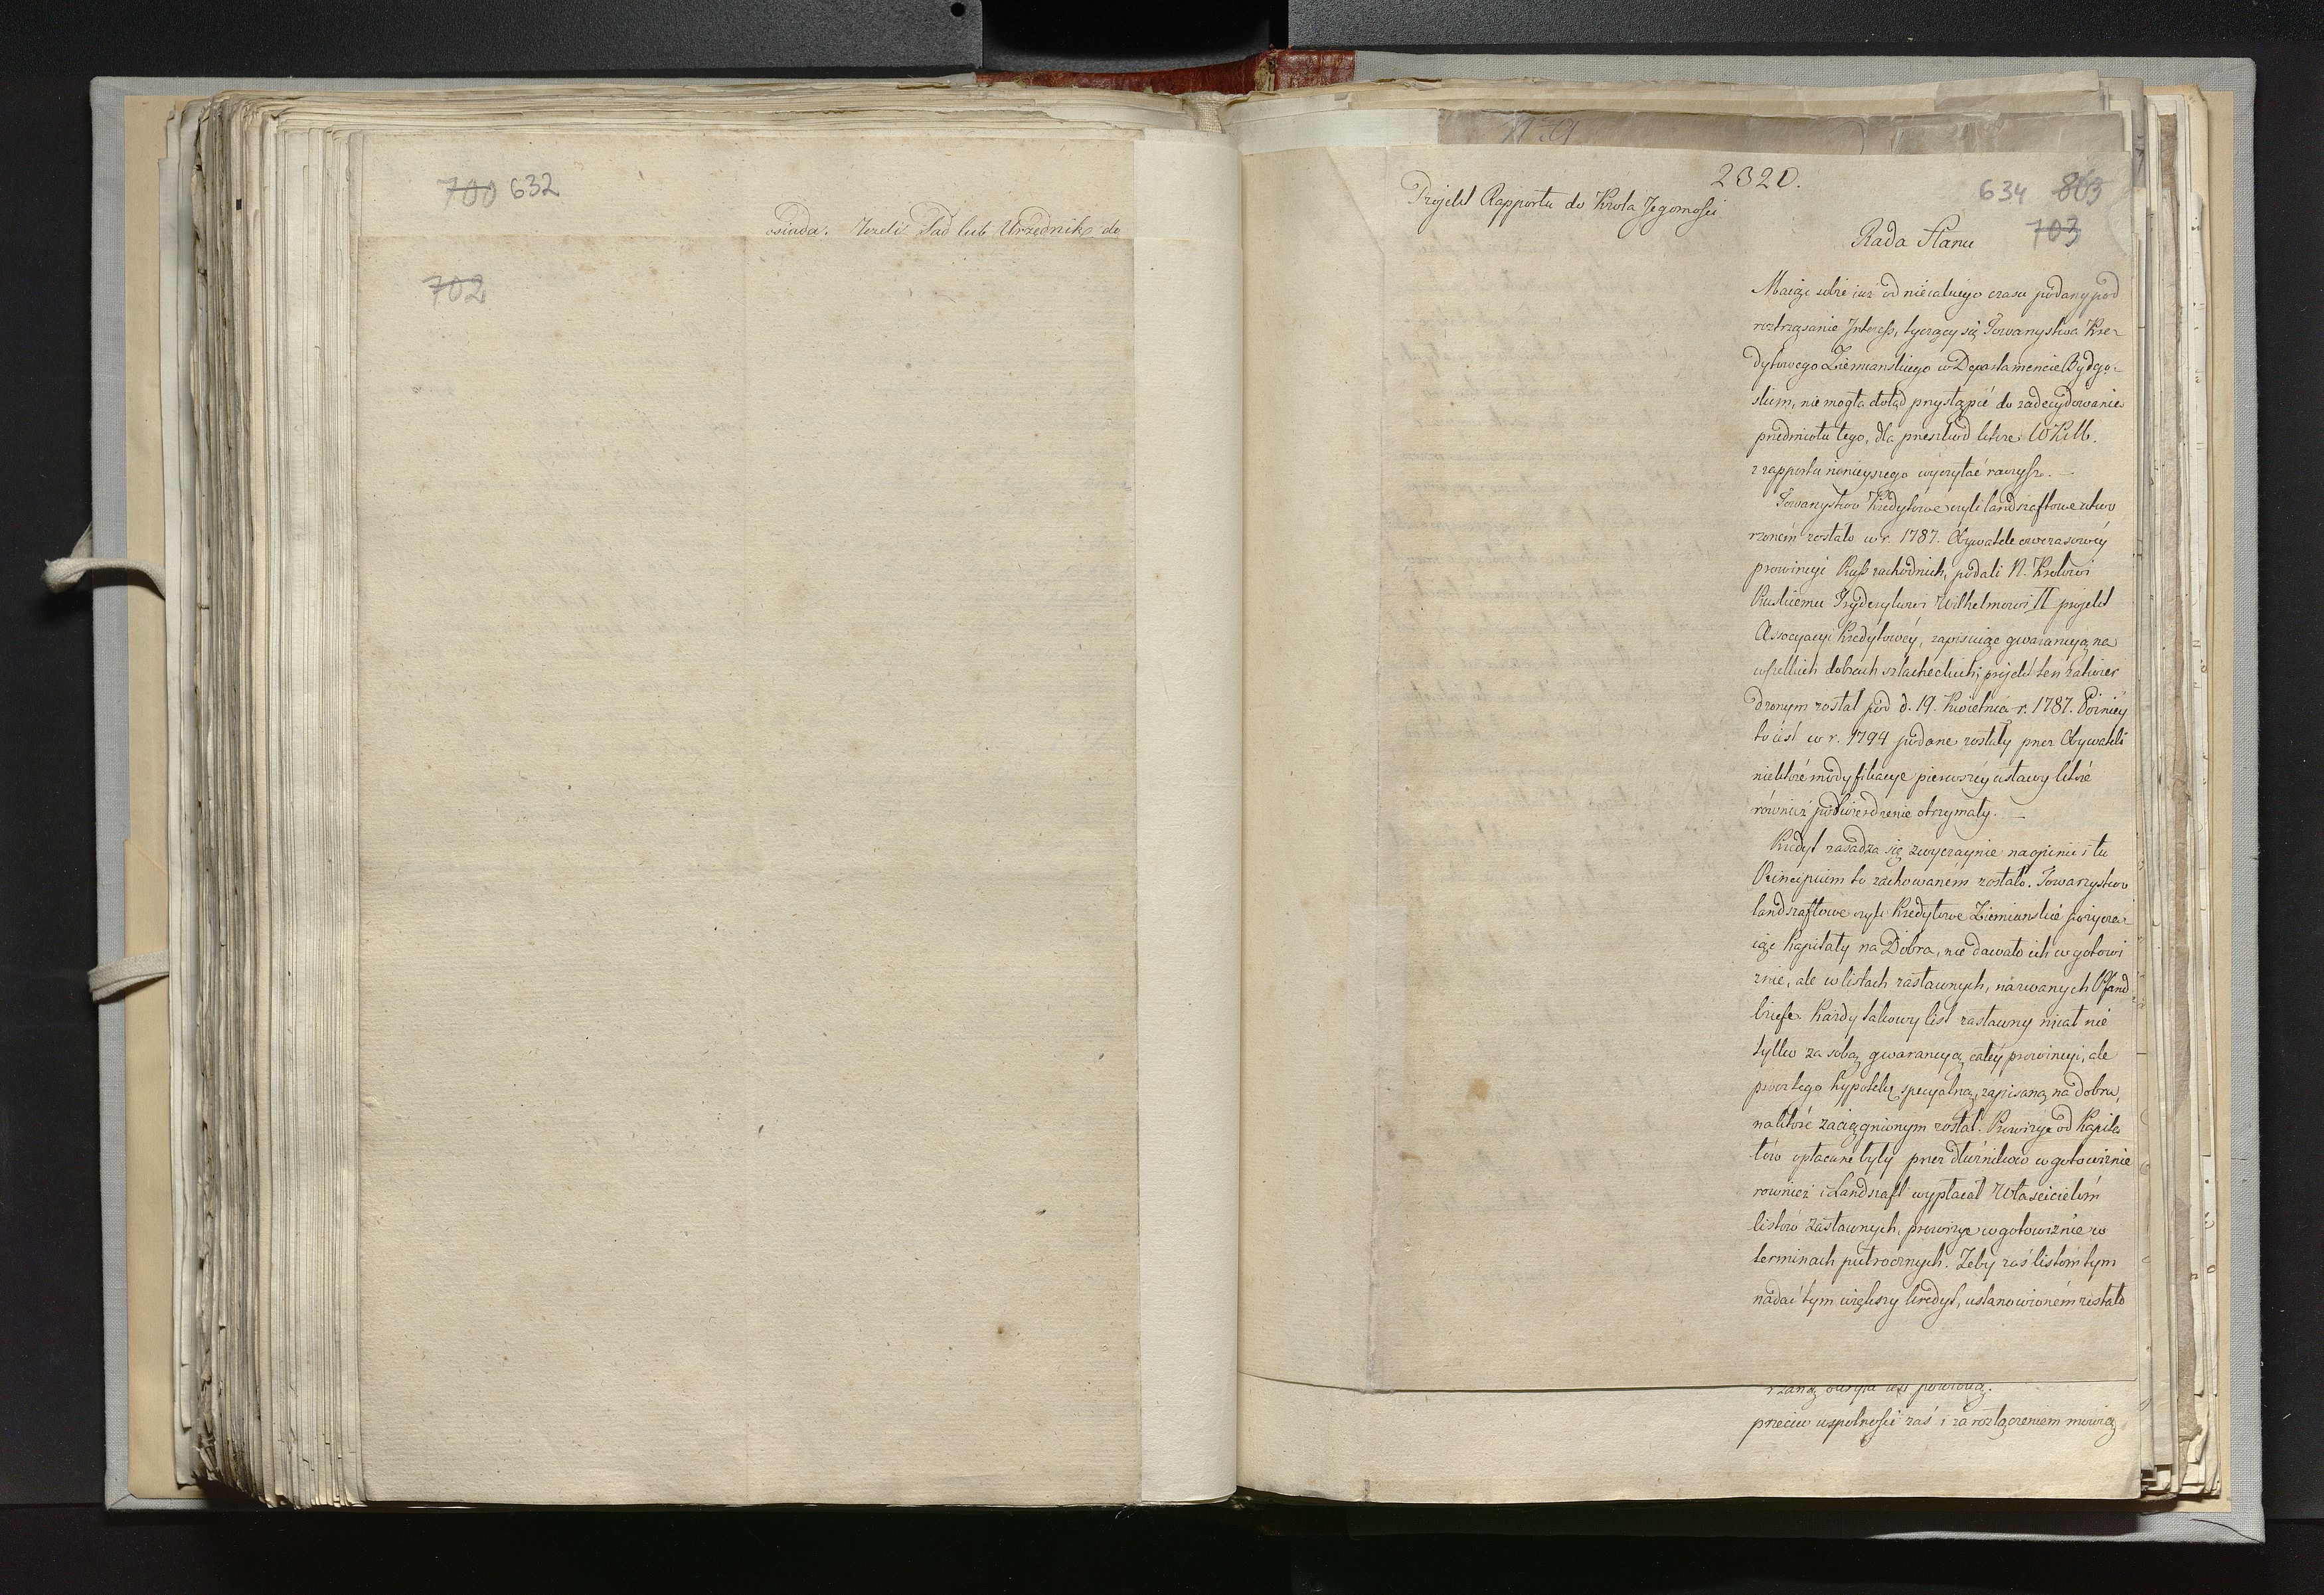 700 632
osiada. Jeżeli Sąd lub Urzędnik do
702
2320.
Projekt Rapportu do Króla Jegomości
634 863
703
Rada Stanu
Maiąc sobie iuż od nieiakiego czasu podany pod
roztrząsanie Interess, tyczący się Towarzystwa Kre-
dytowego Ziemianskiego w Departamencie Bydgo-
skim, nie mogła dotąd przystąpić do zadecydowania
przedmiotu tego, dla przeszkod które WKM.
z rapportu ninieyszego wyczytać raczysz. —
Towarzystwo Kredytowe czyli landszaftowe utwo
rzoném zostało w r. 1787. Obywatele owczasowéy
prowincyi Pruss zachodnich, podali N. Królowi
Pruskiemu Fryderykowi Wilhelmowi II projekt
Associacyi Kredytowéy, zapisuiąc gwarancyą na
wszelkich dobrach szlacheckich; projekt ten zatwier
dzonym został pod d. 19. Kwietnia r. 1787. Poźniéy
to iest w r. 1794 podane zostały przez Obywateli
niektóré modyfikacye pierwszéy ustawy któré
równiéż potwierdzenie otrzymały. —
Kredyt zasadza się zwyczaynie na opinii i tu
Principium to zachowaném zostało. Towarzystwo
landszaftowe czyli Kredytowe Ziemianskié pożycza-
iąc Kapitały na Dobra, nie dawało ich w gotowi
znie, ale w listach zastawnych, nazwanych Pfand
briefe. Każdy takowy list zastawny miał nie
tylko za sobą gwarancyą całéy prowincyi, ale
procz tego hypotekę specyalną, zapisaną na dobra,
na któré zaciągnionym został. Prowizye od Kapita
łów opłacane były przez dłużników w gotowiznie
rownież i Landszaft wypłacał Właścicielóm
listów zastawnych, prowizye w gotowiznie w
terminach półrocznych. Żeby zaś listóm tym
nadać tym większy kredyt, ustanowioném zostało
przeciw wspolności zaś i za rozłączeniem mówią